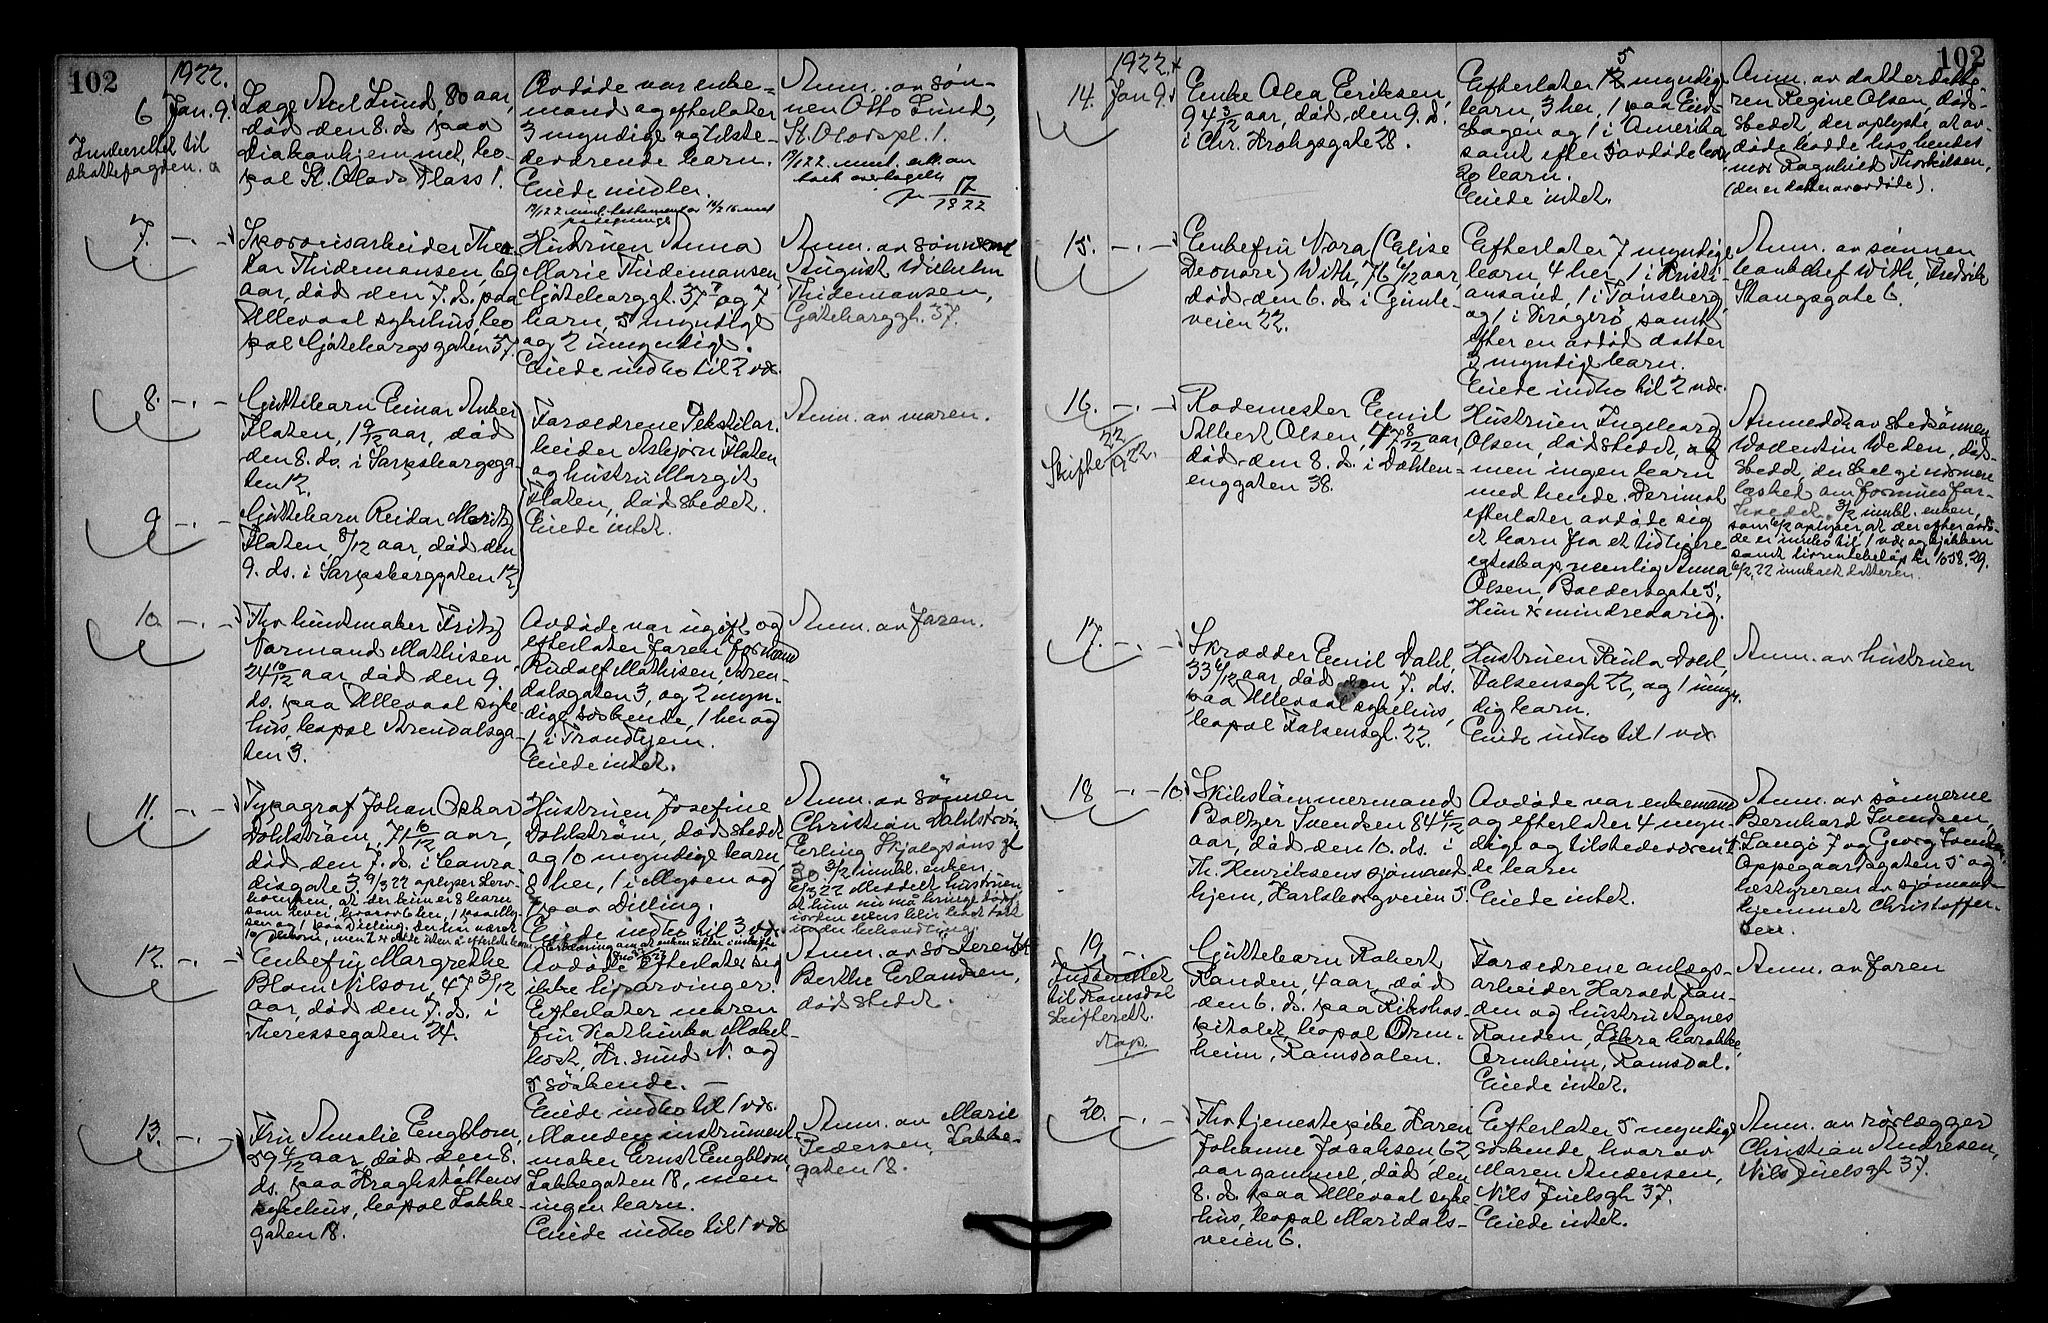 102
1922.
6 Jan. 9.
Indberettet til
skattefogden.
Læge Axel Lund, 80 aar,
død den 8. d. paa
Diakonhjemmet, bo-
pæl St. Olavs Plass 1.
Avdøde var enke-
mand og efterlater
3 myndige og tilste-
deværende barn.
Eiede midler.
Anm. av søn-
nen Otto Lund,
St. Olavspl. 1.
7. -.-
Skovvisarbeider Theo-
dor Thidemansen, 69
aar, død den 7. d. paa
Ullevaal sykehus, bo-
pæl Gøteborgsgaten 37.
Hustruen Anna
Marie Thidemansen,
Gøteborggt. 37 og 7
barn, 5 myndige
og 2 umyndige.
Eiede indbo til 2 vær.
Anm. av sønnen
August Wilhelm
Thidemansen,
Gøteborggt. 37.
8. -.-
Guttebarn Einar Anker
Flaten, 1 9/12 aar, død
den 8. ds. i Sarpsborgga-
ten 12.
Forældrene Tekstilar-
beider Asbjørn Flaten
og hustru Margit
Flaten, dødsstedet.
Eiede intet.
Anm. av moren.
9 -.-
Guttebarn Reidar Moritz
Flaten, 8/12 aar, død den
9. ds. i Sarpsborggaten 12
10. -.-
Fhv. buntmaker Fritz
Normand Mathisen,
24 10/12 aar, død den 9.
ds. paa Ullevaal syke-
hus, bopæl Arendalsga-
ten 3.
Avdøde var ugift og
efterlater faren formand
Rudolf Mathisen, Aren-
dalsgaten 3, og 2 myn-
dige søskende, 1 her og
1 i Trondhjem.
Eiede intet.
Anm. av faren.
11. -.-
Typograf Johan Oskar
Dahlstrøm, 71 10/12 aar,
død den 7. d. i Conra-
disgate 3.
Hustruen Josefine
Dahlstrøm, dødsstedet
og 10 myndige barn,
8 her, 1 i Mysen og
1 paa Dilling.
Eiede indbo til 3 vær.
Anm. av sønnen
Christian Dahlstrøm,
Erling Skjalgsøns gt.
30. 3/2 innbl. enken,
12. -.-
Enkefru Margrethe
Blom Nilson, 47 3/12
aar, død den 7. d. i
Theressegaten 24.
Avdøde efterlater sig
ikke livsarvinger.
Efterlater moren
fru Kathinka Møkel-
bost, Kr.sund N. og
5 søskende. —
Eiede indbo til 1 vær.
Anm. av søsteren frk.
Berthe Erlandsen,
dødsstedet.
13. -.-
Fru Amalie Engblom,
59 4/12 aar, død den 8.
ds. paa Kroghstøttens
sykehus, bopæl Lakke-
gaten 18.
Manden instrument-
maker Ernst Engblom,
Lakkegaten 18, men
ingen barn.
Eiede indbo til 1 vær.
Anm. av Marie
Pedersen, Lakke-
gaten 18.
102
1922.
14. Jan. 9.
Enke Olea Eriksen,
94 3/12 aar, død den 9. d.
i Chr. Krohgsgate 28.
Efterlater 5 myndige
barn, 3 her, 1 paa Eids-
skogen og 1 i Amerika
samt efter
20 barn.
Eiede intet.
Anm. av datterdatte-
ren Regine Olsen, død-
stedet, der oplyste, at av-
døde hadde hos hendes
mor Ragnhild Thorkilsen,
(der er datter av avdøde).
15. -.-
Enkefru Nora (Elise
Leonore) With, 76 6/12 aar,
død den 6. d. i Gimle-
veien 22.
Efterlater 7 myndige
barn, 4 her, 1 i Kristi-
ansand, 1 i Tønsberg
og 1 i Kragerø, samt
efter en avdød datter
3 myndige barn.
Eiede indbo til 2 vær.
Anm. av sønnen
bankchef With, Fredrik
Stangsgate 6.
16. -.-
Skifte 22/9 22.
Rodemester Emil
Albert Olsen, 47 8/12 aar,
død den 8. d. i Dahlen-
enggaten 38.
Hustruen Ingeborg
Olsen, dødsstedet, og
men ingen barn
med hende. Derimot
efterlater avdøde sig
et barn fra et tidligere
egteskap, nemlig Anna
Olsen, Baldersgate 5,
Hun er mindreaarig.
Anmeldt av stedsønnen
Valentin Weden, død-
stedet, der skal gi nærmere
besked om formues for-
holdet. 3/2 innbl. enken,
som 6/2 oplyser at der efter avdø-
de er innbo til 1 vær. og kjøkken
samt livrentebeløp kr. 1058.29.
6/2 22 innkalt datteren.
17. -.-
Skrædder Emil Dahl,
33 6/12 aar, død den 7. ds.
paa Ullevaal sykehus,
bopæl Falsensgt. 22.
Hustruen Paula Dahl,
Falsensgt 22, og 1 umyn-
dig barn.
Eiede indbo til 1 vær.
Anm. av hustruen
18 -.- 10.
Skibstømmermand
Baltzer Svendsen 84 4/12
aar, død den 10. ds. i
Th. Henriksens sjømands-
hjem, Karlsborgveien 5.
Avdøde var enkemand
og efterlater 4 myn-
dige og tilstedeværen-
de barn
Eiede intet.
Anm. av sønnerne
Bernhard Svendsen,
Langø 7 og Georg Svendsen,
Oppegaardsgaten 5 og
bestyreren av sjømands-
hjemmet Christoffer-
sen.
19. -.-
Indberettet
til Romsdal
skifterett.
Guttebarn Robert
Randen, 4 aar, død
den 6. d. paa Rikshos-
pitalet, bopæl Orm-
heim, Romsdalen.
Forældrene anlægs-
arbeider Harald Ran-
den og hustru Agnes
Randen, Løkra barakke,
Ormheim, Romsdal.
Eiede intet.
Anm. av faren
20. -.-
Fhv. tjenestepike Karen
Johanne Jacobsen 62
aar gammel, død den
8. d. paa Ullevaal syke-
hus, bopæl Maridals-
veien 6.
Efterlater 5 myndige
søskende, hvorav
Maren Andersen,
Nils Juelsgt 37.
Eiede intet.
Anm. av rørlægger
Christian Andresen,
Nils Juelsgt 37.